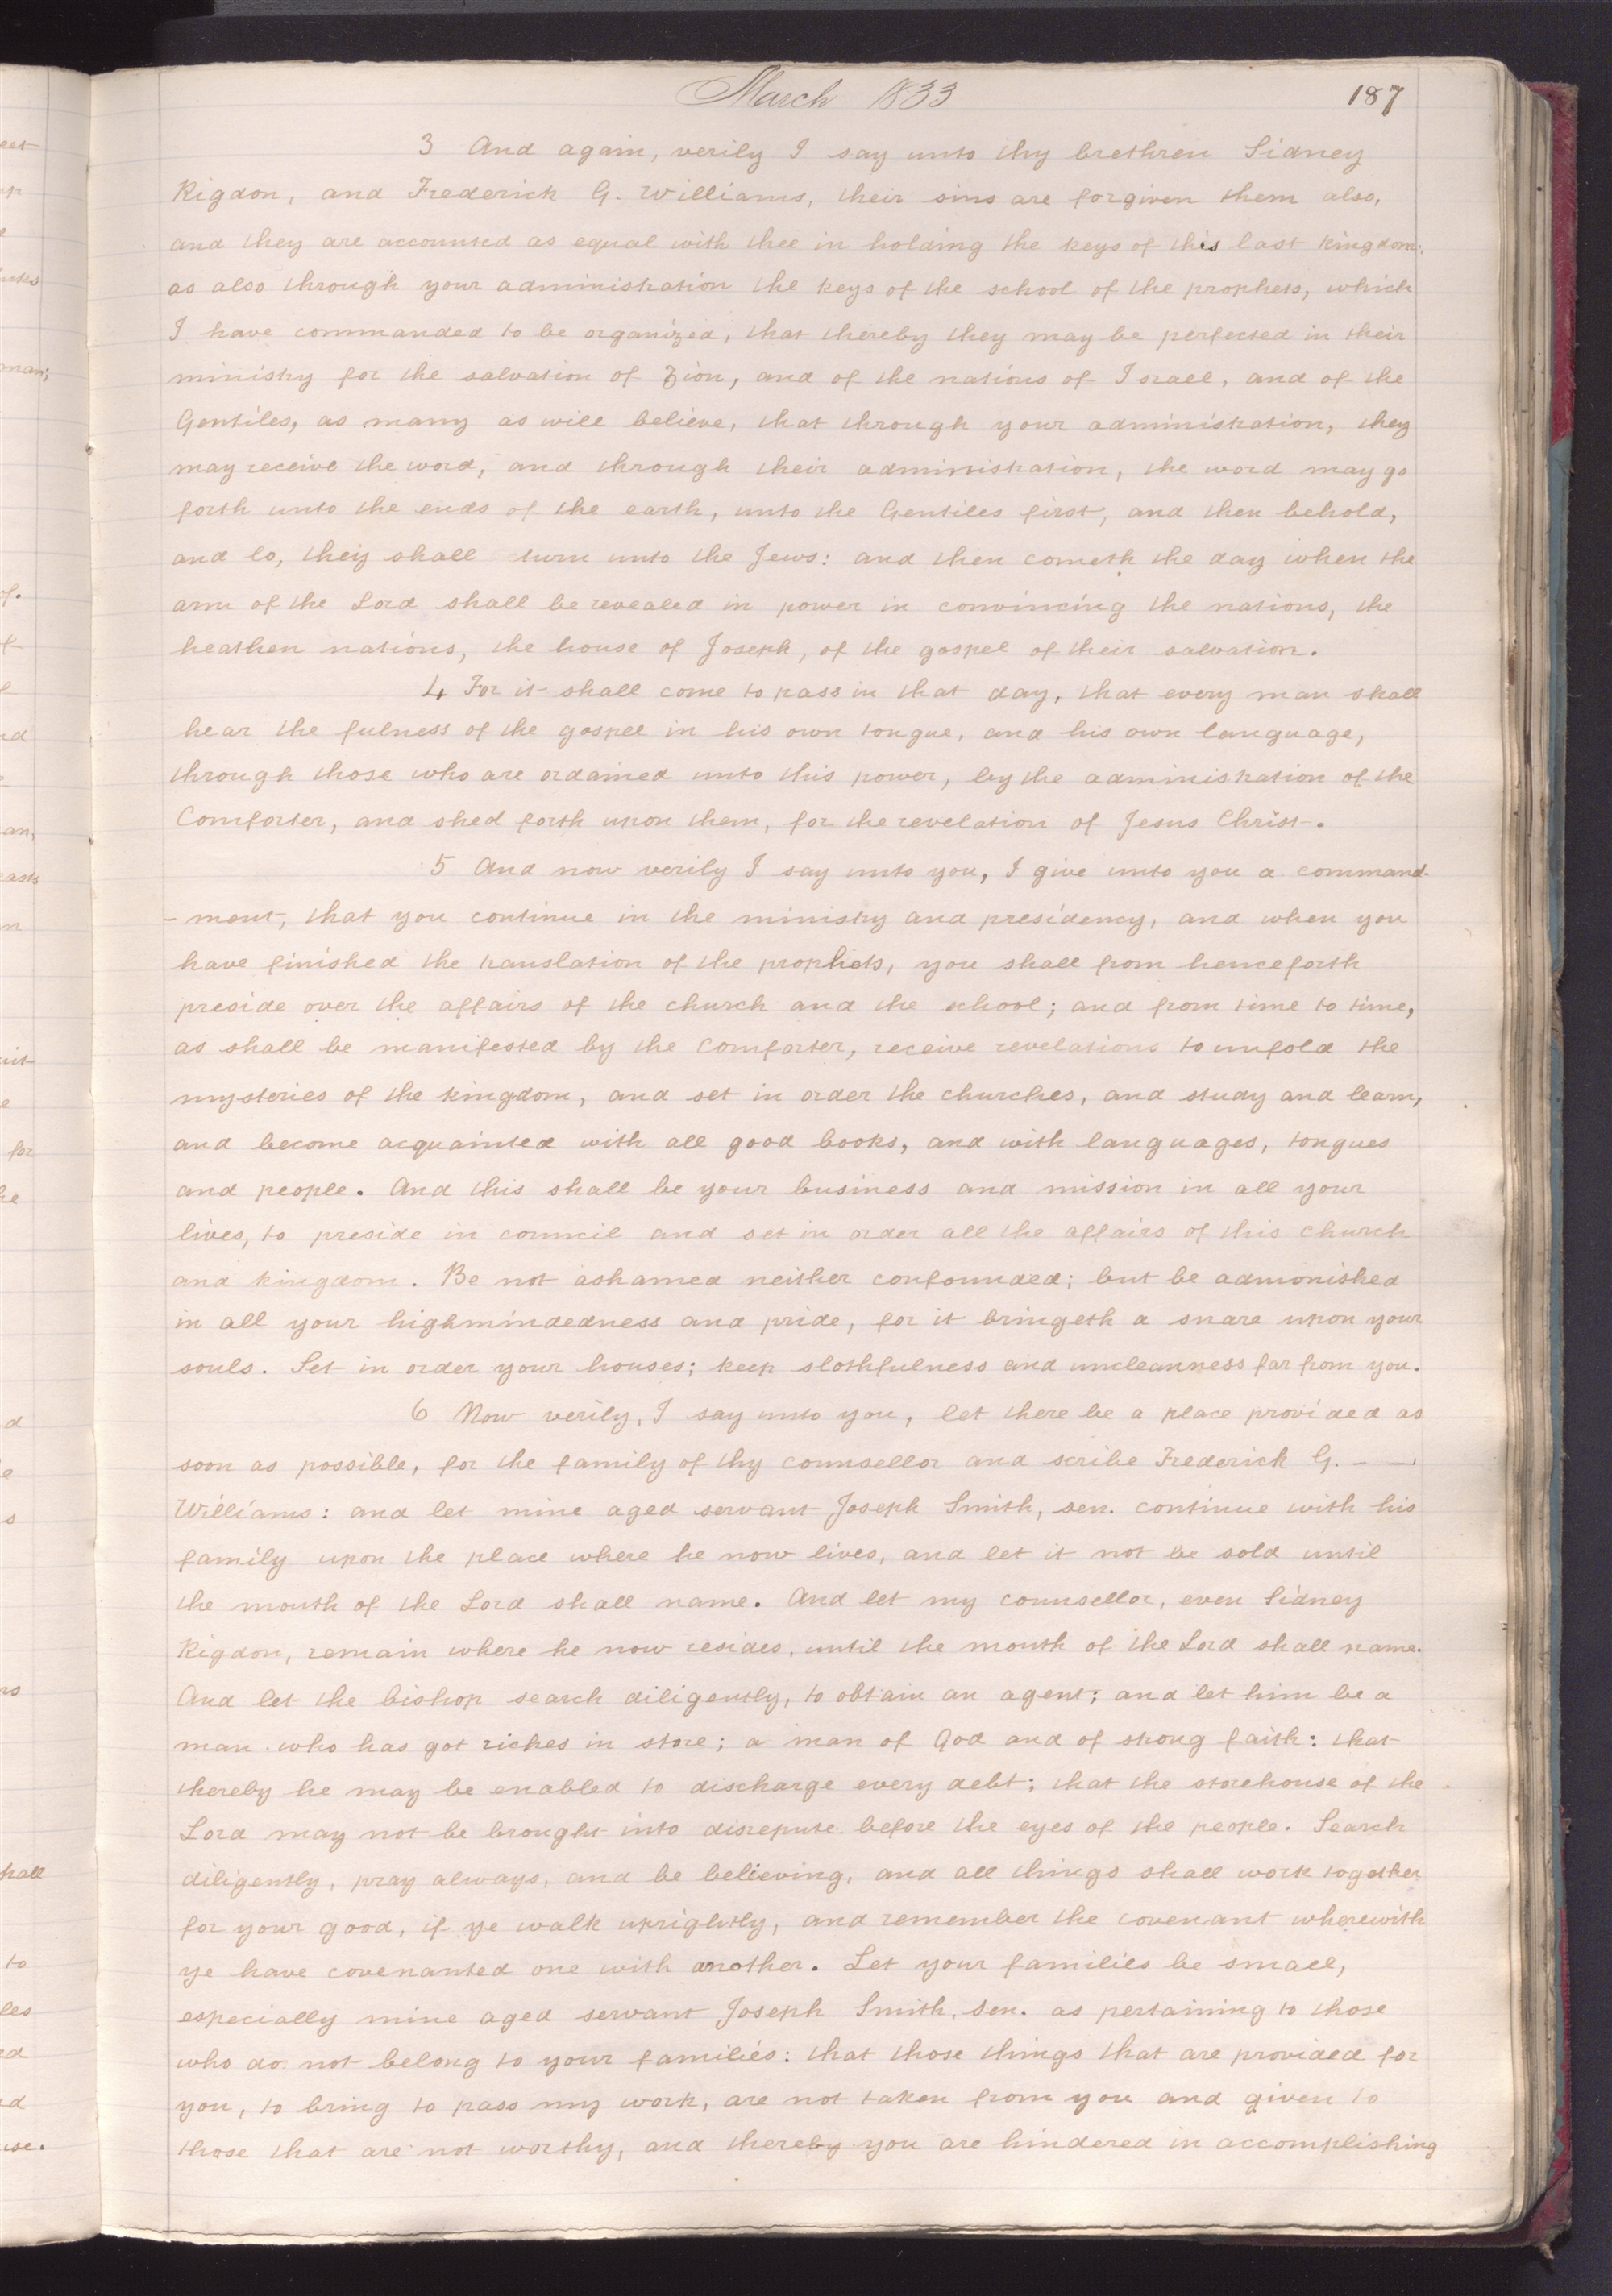 March 1833
187
3 And again, verily I say unto thy brethren Sidney
Rigdon, and Frederick G. Williams, their sins are forgiven them also,
and they are accounted as equal with thee in holding the keys of this last kingdom:
as also through your administration the keys of the school of the prophets, which
I have commanded to be organized, that thereby they may be perfected in their
ministry for the salvation of Zion, and of the nations of Israel, and of the
Gentiles, as many as will believe, that through your administration, they
may receive the word, and through their administration, the word may go
forth unto the ends of the earth, unto the Gentiles first, and then behold,
and lo, they shall turn unto the Jews: and then cometh the day when the
arm of the Lord shall be revealed in power in convincing the nations, the
heathen nations, the house of Joseph, of the gospel of their salvation.
4 For it shall come to pass in that day, that every man shall
hear the fulness of the gospel in his own tongue, and his own language,
through those who are ordained unto this power, by the administration of the
Comforter, and shed forth upon them, for the revelation of Jesus Christ.
5 And now verily I say unto you, I give unto you a command-
-ment, that you continue in the ministry and presidency, and when you
have finished the translation of the prophets, you shall from henceforth
preside over the affairs of the church and the school; and from time to time,
as shall be manifested by the Comforter, receive revelations to unfold the
mysteries of the kingdom, and set in order the churches, and study and learn,
and become acquainted with all good books, and with languages, tongues
and people. And this shall be your business and mission in all your
lives, to preside in council and set in order all the affairs of this church
and kingdom. Be not ashamed neither confounded; but be admonished
in all your highmindedness and pride, for it bringeth a snare upon your
souls. Set in order your houses; keep slothfulness and uncleanness far from you.
6 Now verily, I say unto you, let there be a place provided as
soon as possible, for the family of thy counsellor and scribe Frederick G. - -
Williams: and let mine aged servant Joseph Smith, sen. continue with his
family upon the place where he now lives, and let it not be sold until
the mouth of the Lord shall name. And let my counsellor, even Sidney
Rigdon, remain where he now resides, until the mouth of the Lord shall name.
And let the bishop search diligently, to obtain an agent; and let him be a
man who has got riches in store; a man of God and of strong faith: that
thereby he may be enabled to discharge every debt; that the storehouse of the
Lord may not be brought into disrepute before the eyes of the people. Search
diligently, pray always, and be believing, and all things shall work together
for your good, if ye walk uprightly, and remember the covenant wherewith
ye have covenanted one with another. Let your families be small,
especially mine aged servant Joseph Smith, Sen. as pertaining to those
who do not belong to your families: that those things that are provided for
you, to bring to pass my work, are not taken from you and given to
those that are not worthy, and thereby you are hindered in accomplishing